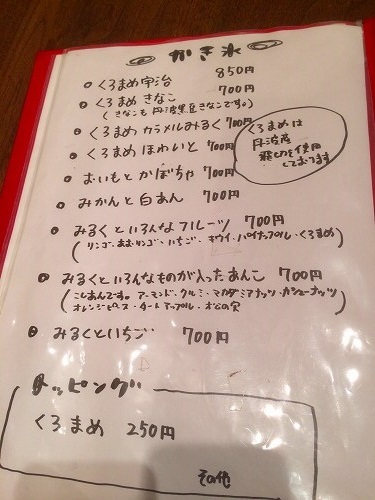 かき氷
くろまめ宇治 850円
くろまめ きなこ 700円
(きなこも丹波黒豆きなこです。)
くろまめ カラメルみるく 700円
くろまめ ほわいと 700円
おいもとかぼちゃ 700円
みかんと白あん 700円
みるくといろんなフルーツ 700円
(リンゴ・あおリンゴ・いちご・キウイ・パイナップル・くろまめ)
みるくといろんなものが入ったあんこ 700円
(こしあんです。アーモンド・クルミ・マカダミアナッツ・カシューナッツ
オレンジピース・タートアップル・松の実)
みるくといちご 700円
くろまめは
丹波産
飛切を使用
しております
トッピング
くろまめ 250円
その他